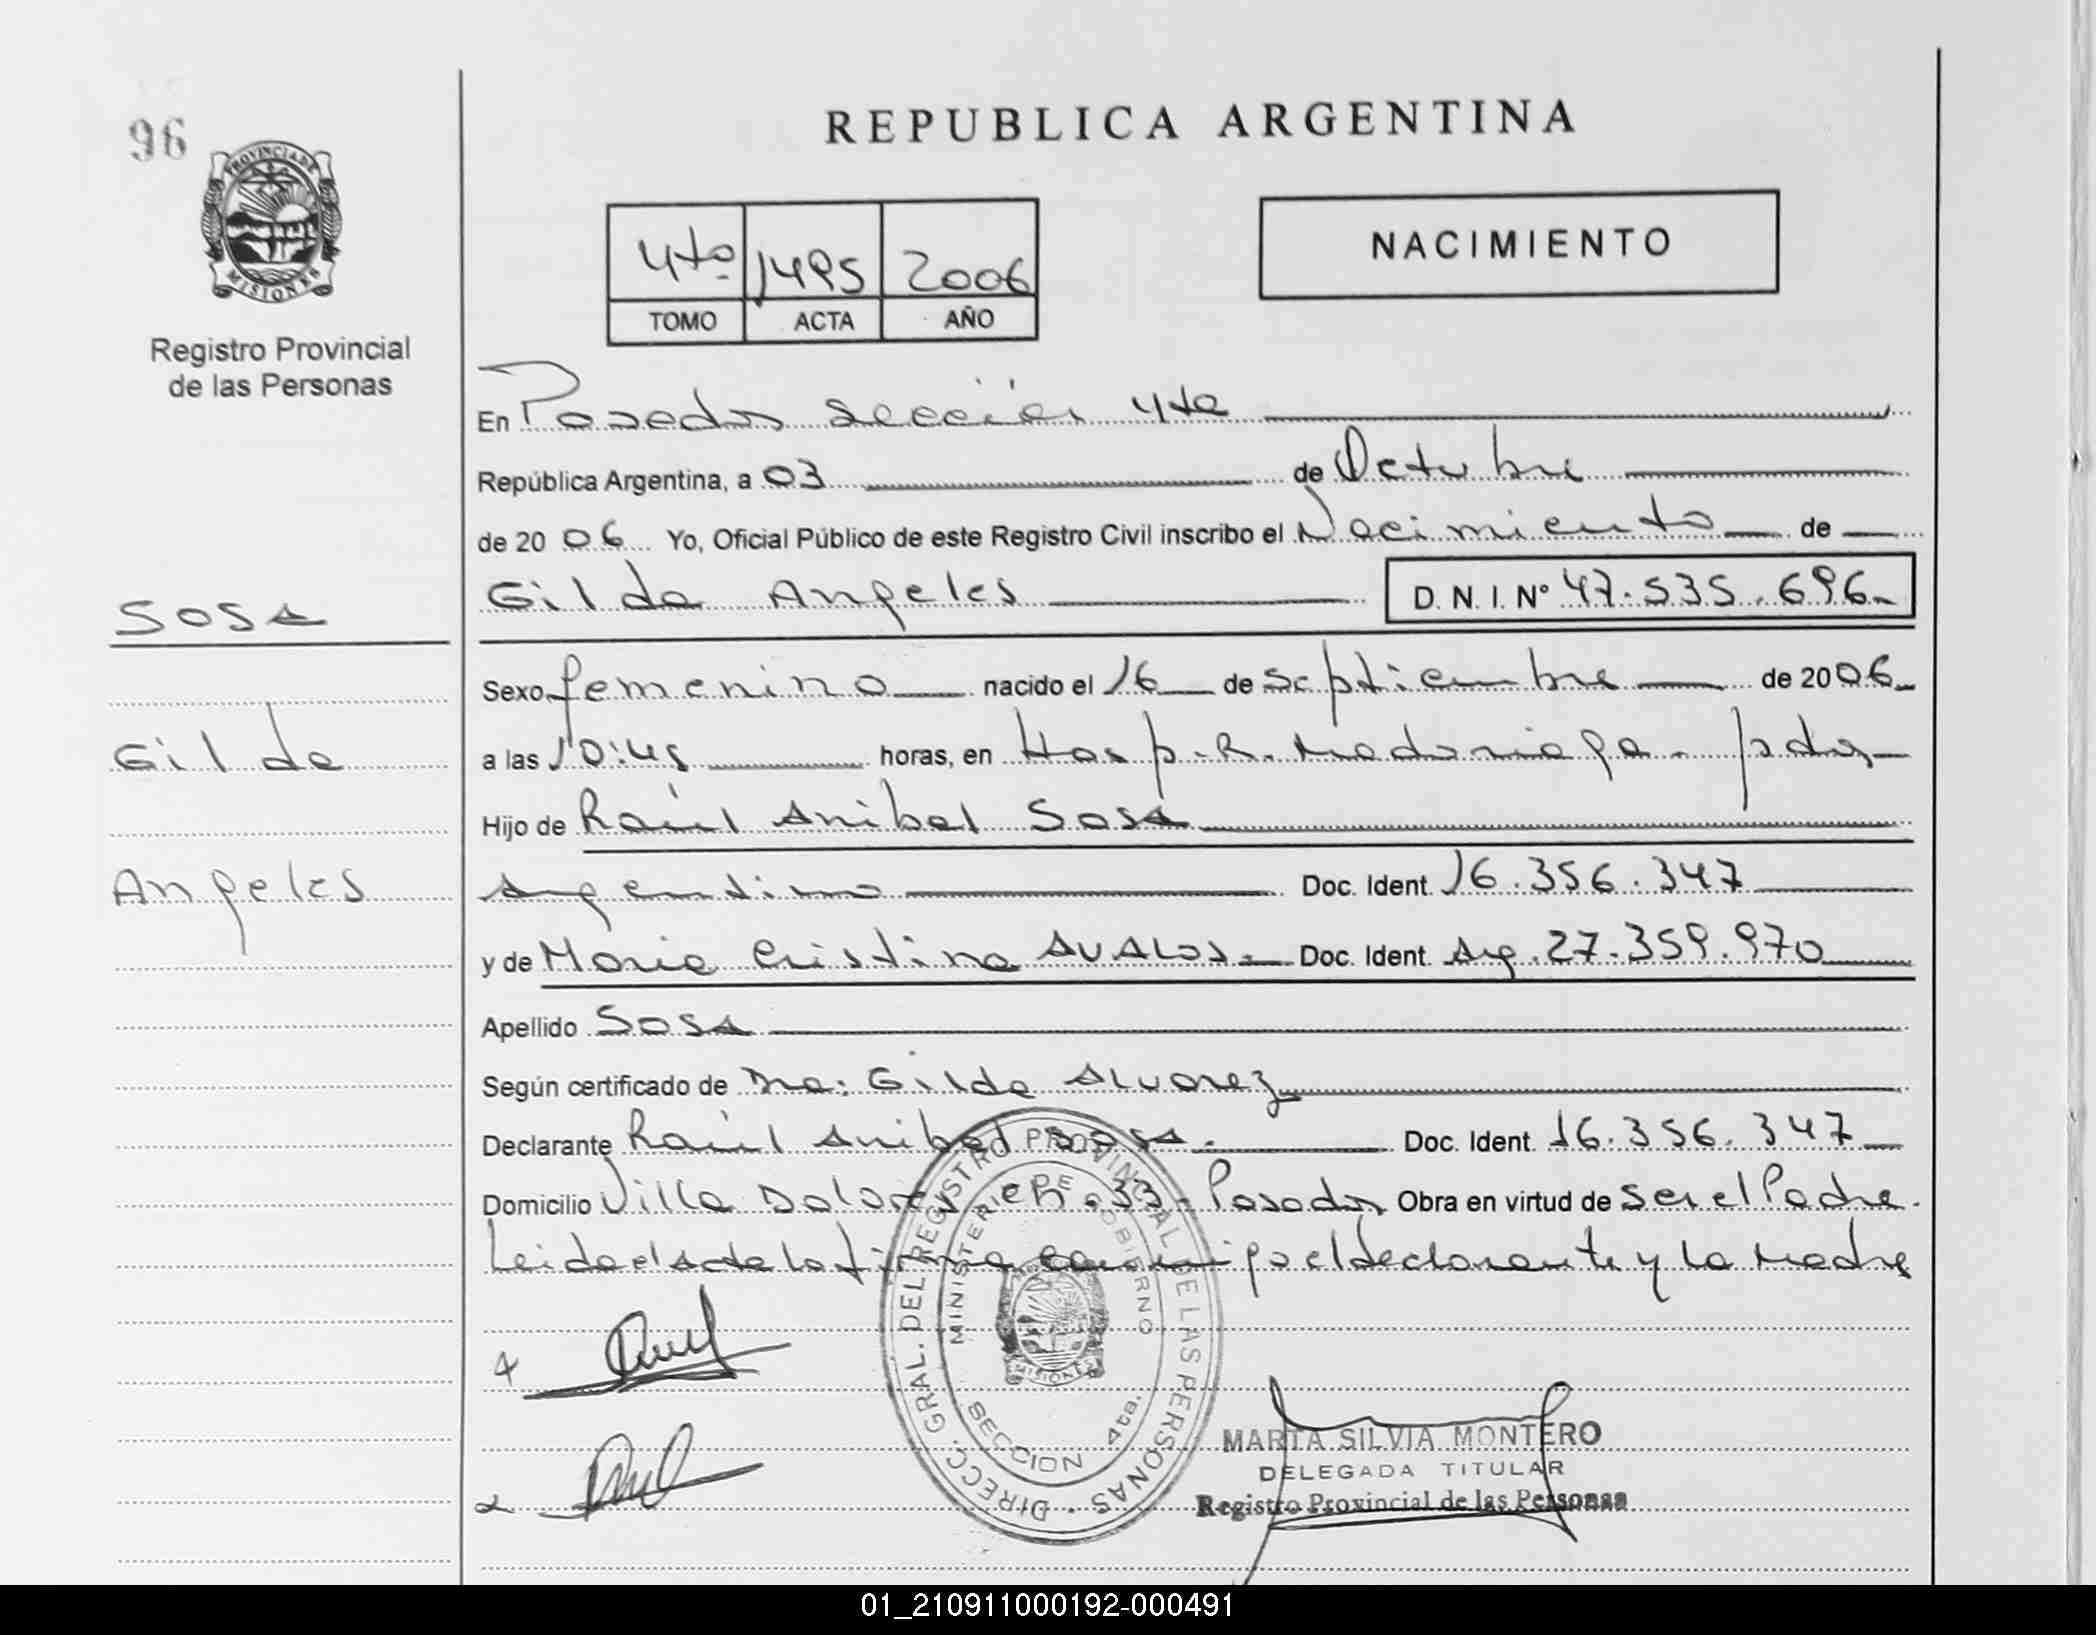 96
REPUBLICA ARGENTINA
PROVINCIA DE
MISIONES
Registro Provincial
de las Personas
4to 1495 2006
TOMO ACTA AÑO
NACIMIENTO
En Posadas sección 4ta
República Argentina, a 03 de Octubre
de 2006 Yo, Oficial Público de este Registro Civil inscribo el Nacimiento de
SOSA
Gilda Angeles D. N. I. Nº 47.535.696
Sexo femenino nacido el 16 de septiembre de 2006
Gilda
a las 10:45 horas, en Hosp. R. Madariaga - pdas
Hijo de Raúl Anibal Sosa
Angeles
Argentino Doc. Ident. 16.356.347
y de Maria Cristina AVALOS Doc. Ident. Arg. 27.359.970
Apellido SOSA
Según certificado de Dra: Gilda Alvarez
Declarante Raúl Anibal Sosa. Doc. Ident. 16.356.347
Domicilio Villa Dolores, ch. 33 - Posadas Obra en virtud de ser el Padre.
Leida el acta la firma conmigo el declarante y la Madre
DIRECC. GRAL. DEL REGISTRO PROVINCIAL DE LAS PERSONAS
MINISTERIO DE GOBIERNO
MISIONES
SECCION 4ta.
MARTA SILVIA MONTERO
DELEGADA TITULAR
Registro Provincial de las Personas
01_210911000192-000491